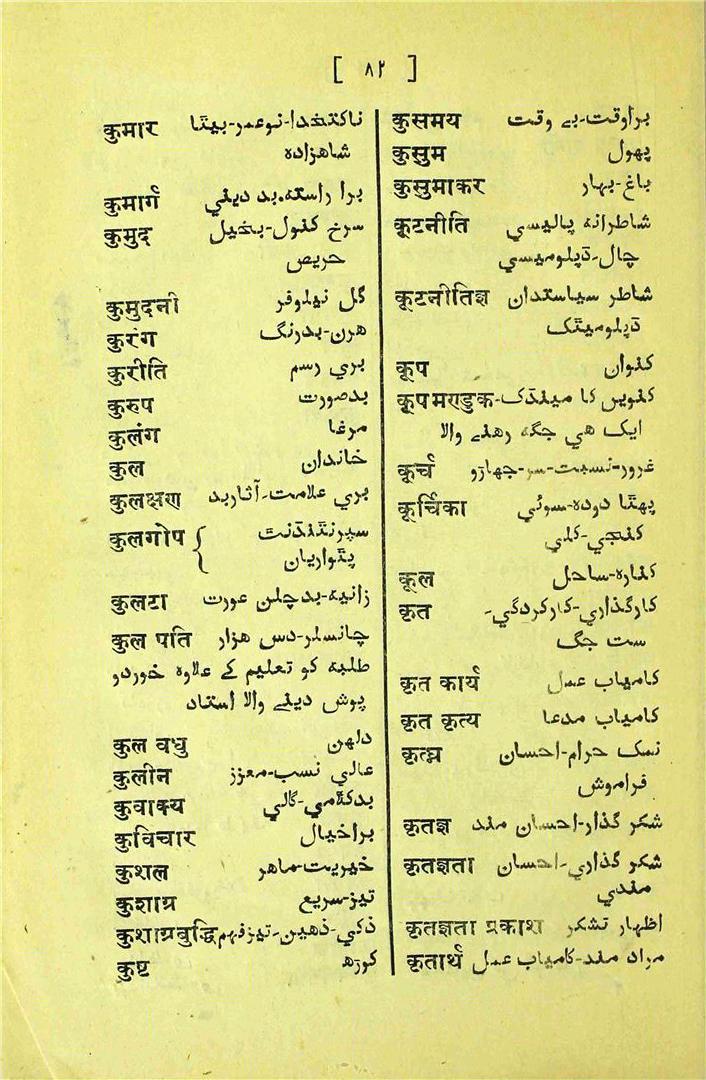 [ ۸۲ ]
कुमार ناکتخدا-نوعمر-بیٹا
شاهزاده
कुमार्ग برا راسته-بد دیني
कुमुद سرخ کنول-بخیل
حریص
कुमुदनी گل نیلوفر
कुरंग هرن-بدرنگ
कुरीति بري رسم
कुरुप بدصورت
कुलंग مرغا
कुल خاندان
कुलक्षण بري علامت-آثاربد
कुलगोप { سپرنٹنڈنٹ
پٹواریان
कुलटा زانیه-بدچلن عورت
कुल पति چانسلر-دس هزار
طلبه کو تعلیم کے علاوه خوردو
پوش دینے والا استاد
कुल वधु دلهن
कुलीन عالي نسب-معزز
कुवाक्य بدکلامي-گالي
कुविचार براخیال
कुशल خیریت-ماهر
कुशाग्र تیز-سریع
कुशाग्रबुद्धि ذکي-ذهین-تیزفهم
कुष्ट کوڑھ
कुसमय براوقت-بے وقت
कुसुम پھول
कुसुमाकर باغ-بهار
कूटनीति شاطرانه پالیسي
چال-ڈپلومیسي
कूटनीतिज्ञ شاطر سیاستدان
ڈپلومیٹک
कूप کنواں
कूपमण्डुक کنویں کا مینڈک-
ایک هي جگه رهنے والا
कूर्च غرور-نسبت-سر-جهاڑو
कूर्चिका پھٹا دوده-سوئي
کنجي-کلي
कूल کناره-ساحل
कृत کارگذاري-کارکردگي-
ست جگ
कृत कार्य کامیاب عمل
कृत कृत्य کامیاب مدعا
कृतघ्न نمک حرام-احسان
فراموش
कृतज्ञ شکر گذار-احسان مند
कृतज्ञता شکر گذاري-احسان
مندي
कृतज्ञता प्रकाश اظهار تشکر
कृतार्थ مراد مند-کامیاب عمل